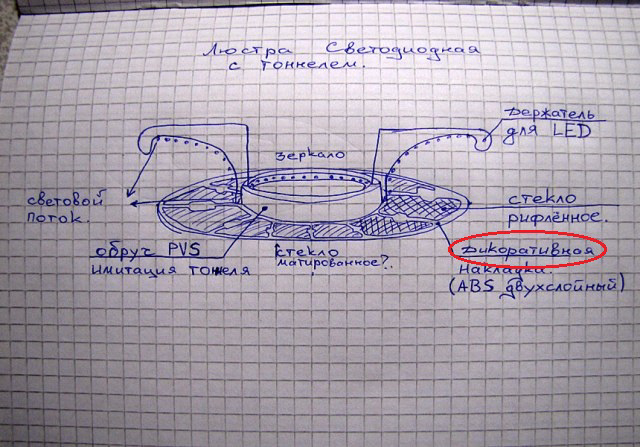 Люстра Светодиодная
с тоннелем.
Держатель
для LED
зеркало
световой
поток.
стекло
рифлённое.
обруч PVS
имитация тонеля
стекло
матированное?..
Дикоративная
накладки.
(ABS двухслойный)